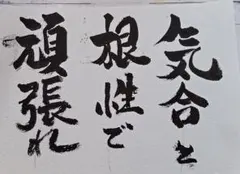 気合と
根性で
頑張れ